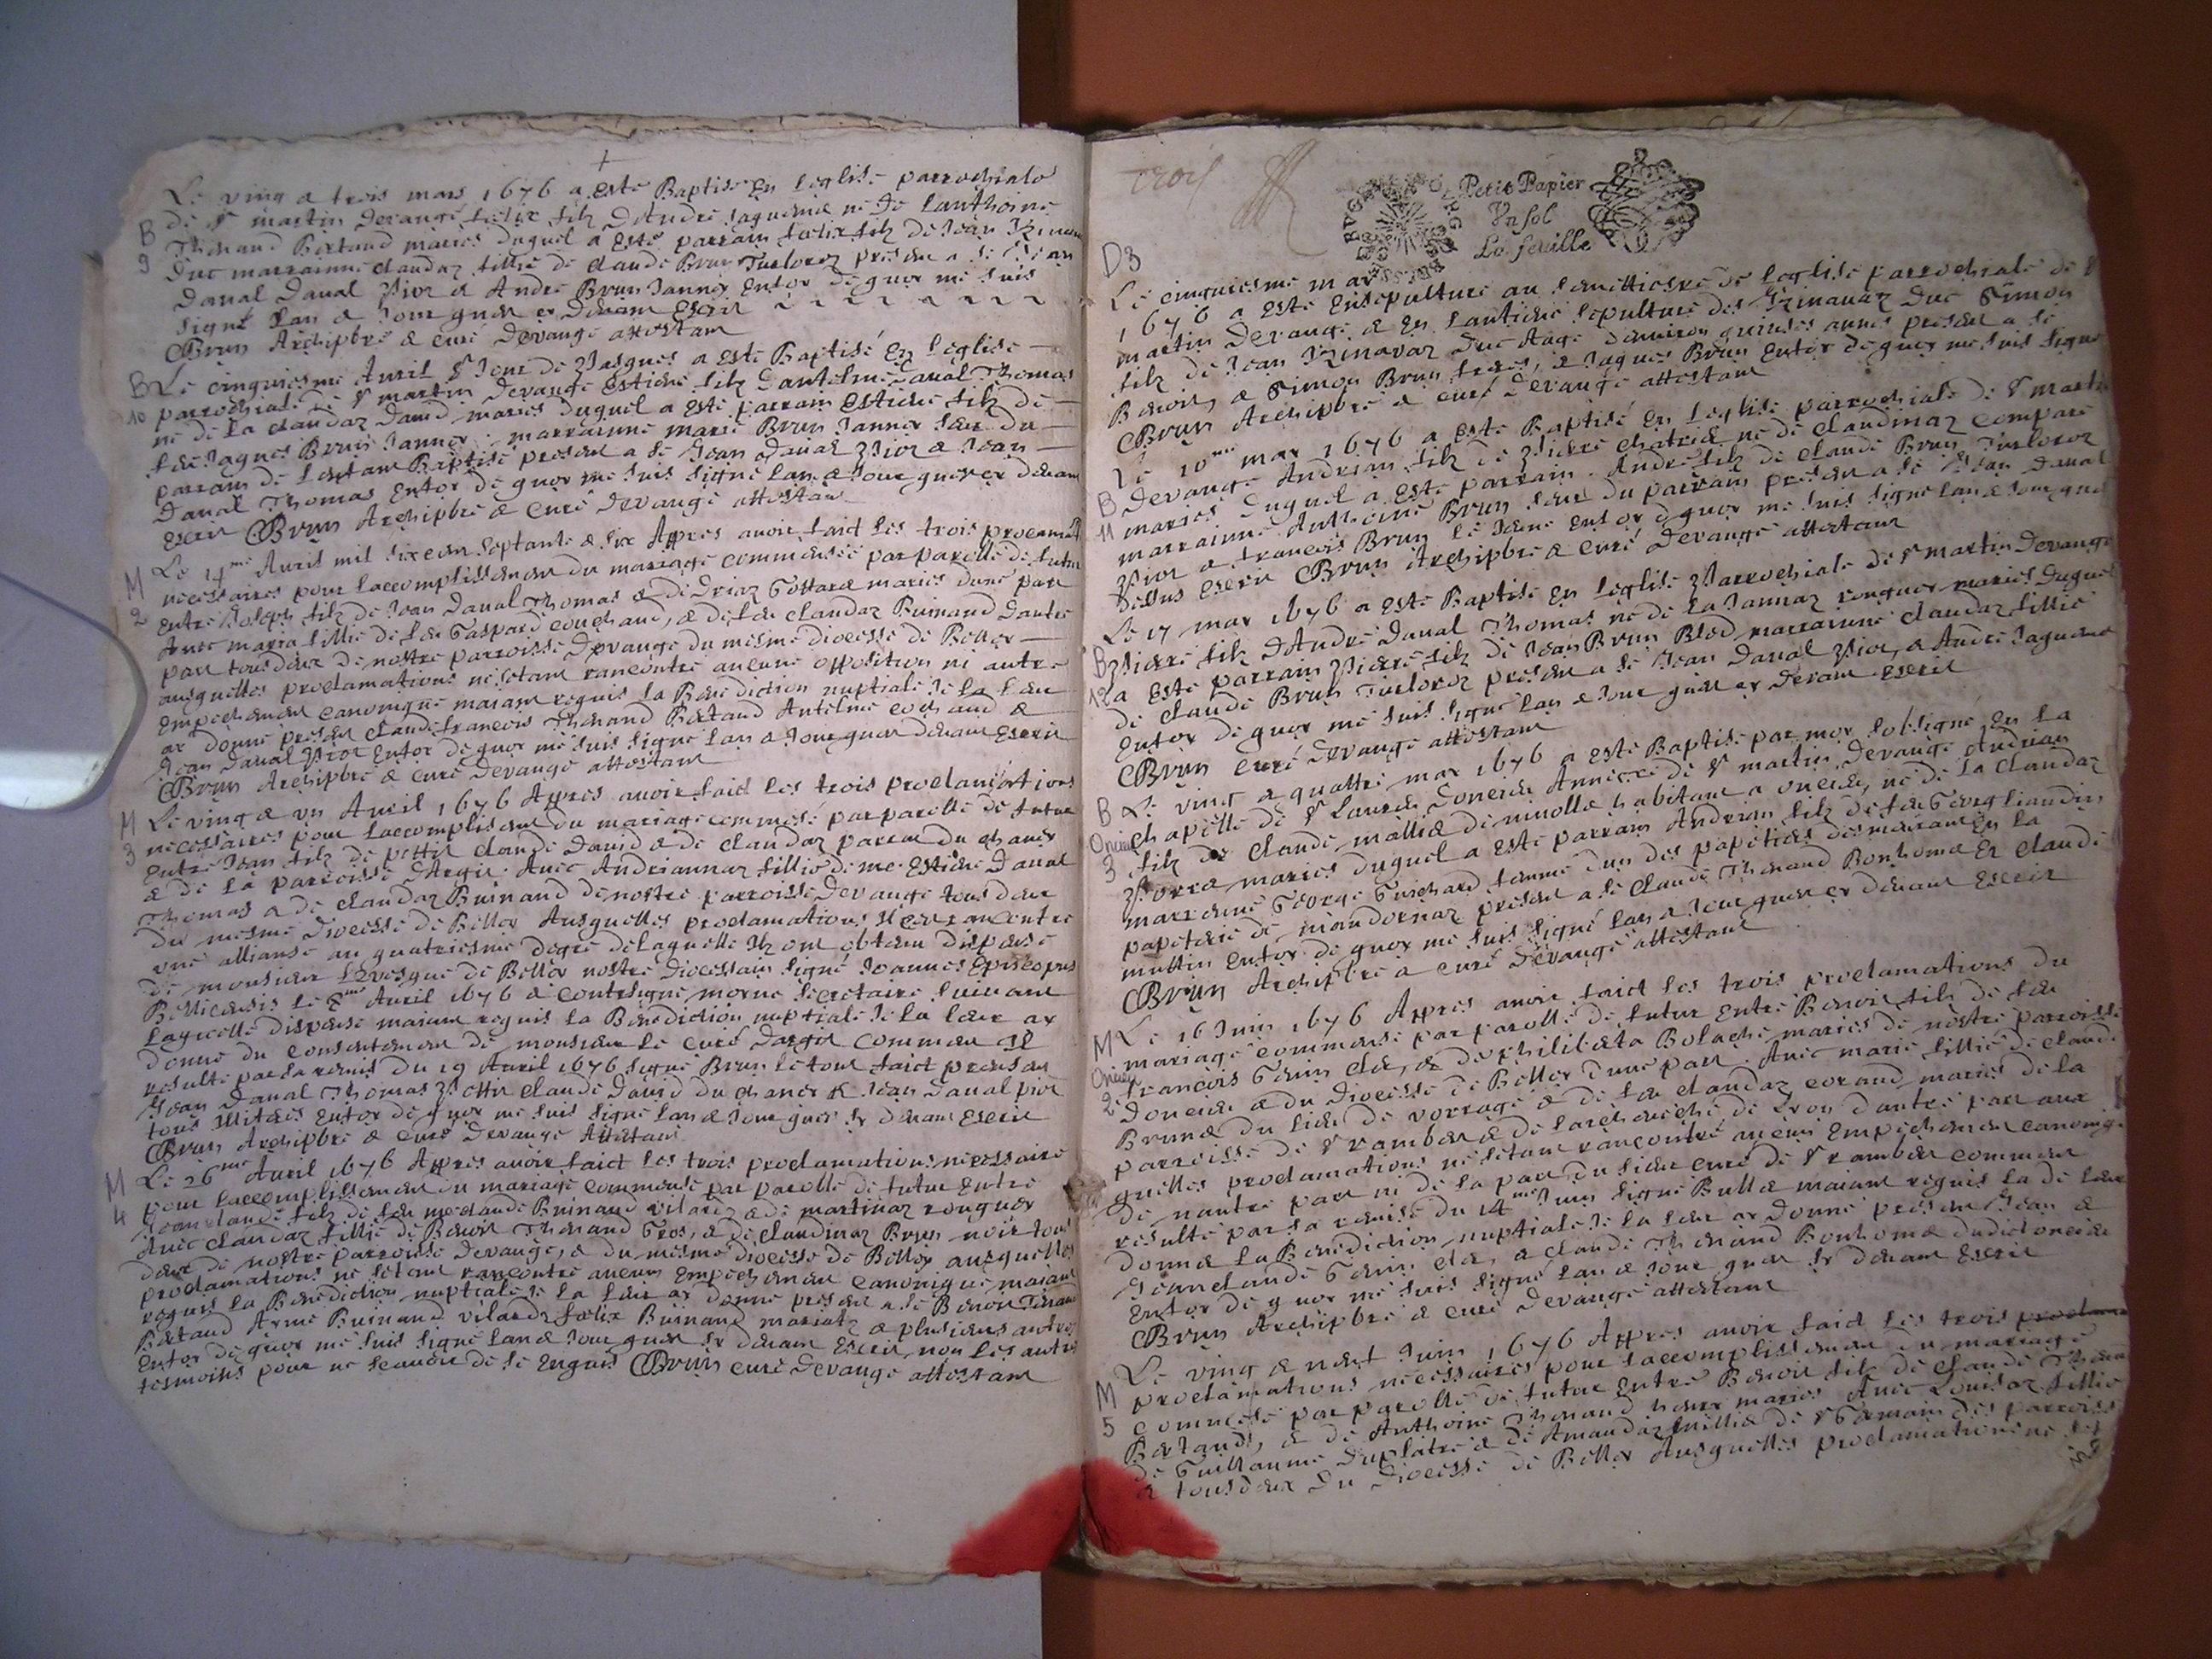 Le ving & trois mars 1676 a esté Baptisé En leglise parrochiale
B de st martin devange foelix filz d'André Jaguemé né de lanthoine
9 Thenand Bertand mariés duquel a esté parrain foelix filz de Jean
duc marrainne claudaz fillie de claude Brun Turloroz presen a ce Jean
daual daual Prior & André Brun Janner Enfoy de quoy me suis
signé lan & Jour que et devant Escrit
Brun Archipbre & curé devange attestant
B Le cinquiesme Avril st Jour de Pasques a esté Baptisé En leglise
10 parrochiale de st martin devange Estiene filz d'antelme daual Thomas
né de la claudaz david mariés duquel a esté parrain Estiene filz de
feu Jaques Brun Janner marrainne marie Brun Janner du
parrain de lenfant Baptisé presen a ce Jean daual Prior & Jean
daual Thomas Enfoy de quoy me suis signé lan & Jour que et devant
Escrit Brun Archipbre & curé devange attestant
M Le 14me Avril mil sixcen septante & six Appres avoir faict les trois proclamat
2 necessaires pour laccomplissement du mariage commensée par parolle de futur
Entre Joseph filz de Jean daual Thomas & de mariés dune part
Avec maria fillie de feu Gaspard couchand, & de feu claudaz Buinand dautre
part tous deux de nostre parroisse devange du mesme diocesse de Belley
ausquelles proclamations ne sestant rancontré aucune opposition ni autre
Empechement canonique maiant requis la Benediction nuptiale Je la leur
ay donné presen claude francois Thenand Bertand Antelme couchand &
Jean daual Prior Enfoy de quoy me suis signé lan & Jour que devant Escrit
Brun Archipbre & curé devange attestant
M Le ving & un Avril 1676 Appres avoir faict les trois proclamations
3 necessaires pour laccomplissement du mariage commensé par parolle de futur
Entre Jean filz de pettit claude david & de claudaz du chaner
& de la parroisse dArgis Avec Andriannaz fillie de me Estiene daual
Thomas & de claudaz Buinand de nostre parroisse devange tous deux
du mesme diocesse de Belley Ausquelles proclamations rancontre
une alliance au quatriesme degré de laquelle Ilz ont obtenu dispense
de monsieur LEvesque de Belley nostre diocessain signé Joannes Episcopus
Bellicensis le 8me Avril 1676 & contresigné morne secretaire suivant
laquelle dispense maiant requis la Benediction nuptiale Je la leur ay
donné du consentement de monsieur le curé dargis comme Il
resulte par sa remis du 19 Avril 1676 signé Brun le tout faict presen
Jean daual Thomas Pettit claude david du chaner & Jean daual prior
tous Enfoy de quoy me suis signé lan & Jour que et devant Escrit
Brun Archipbre & curé devange Attestant
M Le 26me Avril 1676 Appres avoir faict les trois proclamations necessaire
4 pour laccomplissement du mariage commensé par parolle de futur Entre
Jean claude filz de feu me claude Buinand vilard & de martinaz ronguer
Avec claudaz fillie de Benoit Thenand Gros, & de claudinaz Brun noir tous
deux de nostre parroisse devange, & du mesme diocesse de Belley ausquelles
proclamations ne sestant rancontré aucun Empechement canonique maiant
requis la Benediction nuptiale Je la leur ay donné presen a ce Benoit Thenand
Bertand Aymé Buinand vilard foelix Buinand & plusieurs autres
Enfoy de quoy me suis signé lan & Jour que et devant Escrit non les autres
tesmoins pour ne scavoir de ce Enquis Brun curé devange attestant
trois
Petit Papier
Un sol
La feuille
D3
Le cinquiesme may
1676 a esté Ensepulturé au semittiere de leglise parrochiale de st
martin devange & En lantiene sepulture des duc Simon
filz de Jean duc Aagé denviron quinses annés presen a ce
Benoit, & Simon Brun freres, & Jaques Brun Enfoy de quoy me suis signé
Brun Archipbre & curé devange attestant
Le 10me may 1676 a esté Baptisé En leglise parrochiale de st martin
B devange Andrian filz de Pierre né de claudinaz compare
11 mariés duquel a esté parrain André filz de claude Brun Turloroz
marrainne Anthoine Brun du parrain presen a ce Jean daual
Prior & francois Brun le Jeune Enfoy de quoy me suis signé lan & Jour que
dessus Escrit Brun Archipbre & curé devange attestant
Le 17 may 1676 a esté Baptisé En leglise Parrochiale de st martin devange
B Pierre filz d'André daual Thomas né de la Jannaz ronguer mariés duquel
12 a esté parrain Pierre filz de Jean Brun Blod marrainne claudaz fillie
de claude Brun Turloroz presen a ce Jean daual Prior, & André Jaguemé
Enfoy de quoy me suis signé lan & Jour que et devant Escrit
Brun curé devange attestant
B Le ving & quattre may 1676 a esté Baptisé par moy soubsigné En la
Oncieu chapelle de st Laurent doncieu Annexe de st martin devange Andrian
3 filz de claude mallie de minolle habitant a oncieu, né de la claudaz
mariés duquel a esté parrain Andrian filz de feu
marrainne George Guichard femme dun des papetiers desmeurant En la
papeterie de mandornaz presen a ce claude Thenand Bonhome Et claude
muttin Enfoy de quoy me suis signé lan & Jour que et devant Escrit
Brun Archipbre & curé devange attestant
M Le 16 Juin 1676 Appres avoir faict les trois proclamations du
Oncieu mariage commensé par parolle de futur Entre Benoit filz de feu
2 francois & de philiberta Bolache mariés de nostre parroisse
doncieu & du diocesse de Belley dune part. Avec marie fillie de claude
Brunet du lieu de vorrage & de feu claudaz corand mariés de la
parroisse de st rambert & de larcheveché de Lyon dautre part aux
quelles proclamations ne sestant rancontré aucun Empechement canoniq.
de nautre part ni de la part du sieur curé de st rambert comme
resulte par sa remise du 14me Juin signé Bullet maiant requis la de leur
donner la Benediction nuptiale Je la leur ay donné presen Jean &
Jeanclaude & claude Thenand Bonhome dudict oncieu
Enfoy de quoy me suis signé lan & Jour que et devant Escrit
Brun Archipbre & curé devange attestant
M Le ving & neuf Juin 1676 Appres avoir faict les trois
5 proclamations necessaires pour laccomplissement du mariage
commensé par parolle de futur Entre Benoit filz de claude Thenand
Bertand, & de Anthoine Thenand mariés Avec Louisaz fillie
de Guillaume Duplatre & de Amandaz de st Germain des parroisses
& tous deux du diocesse de Belley Ausquelles proclamations ne ses